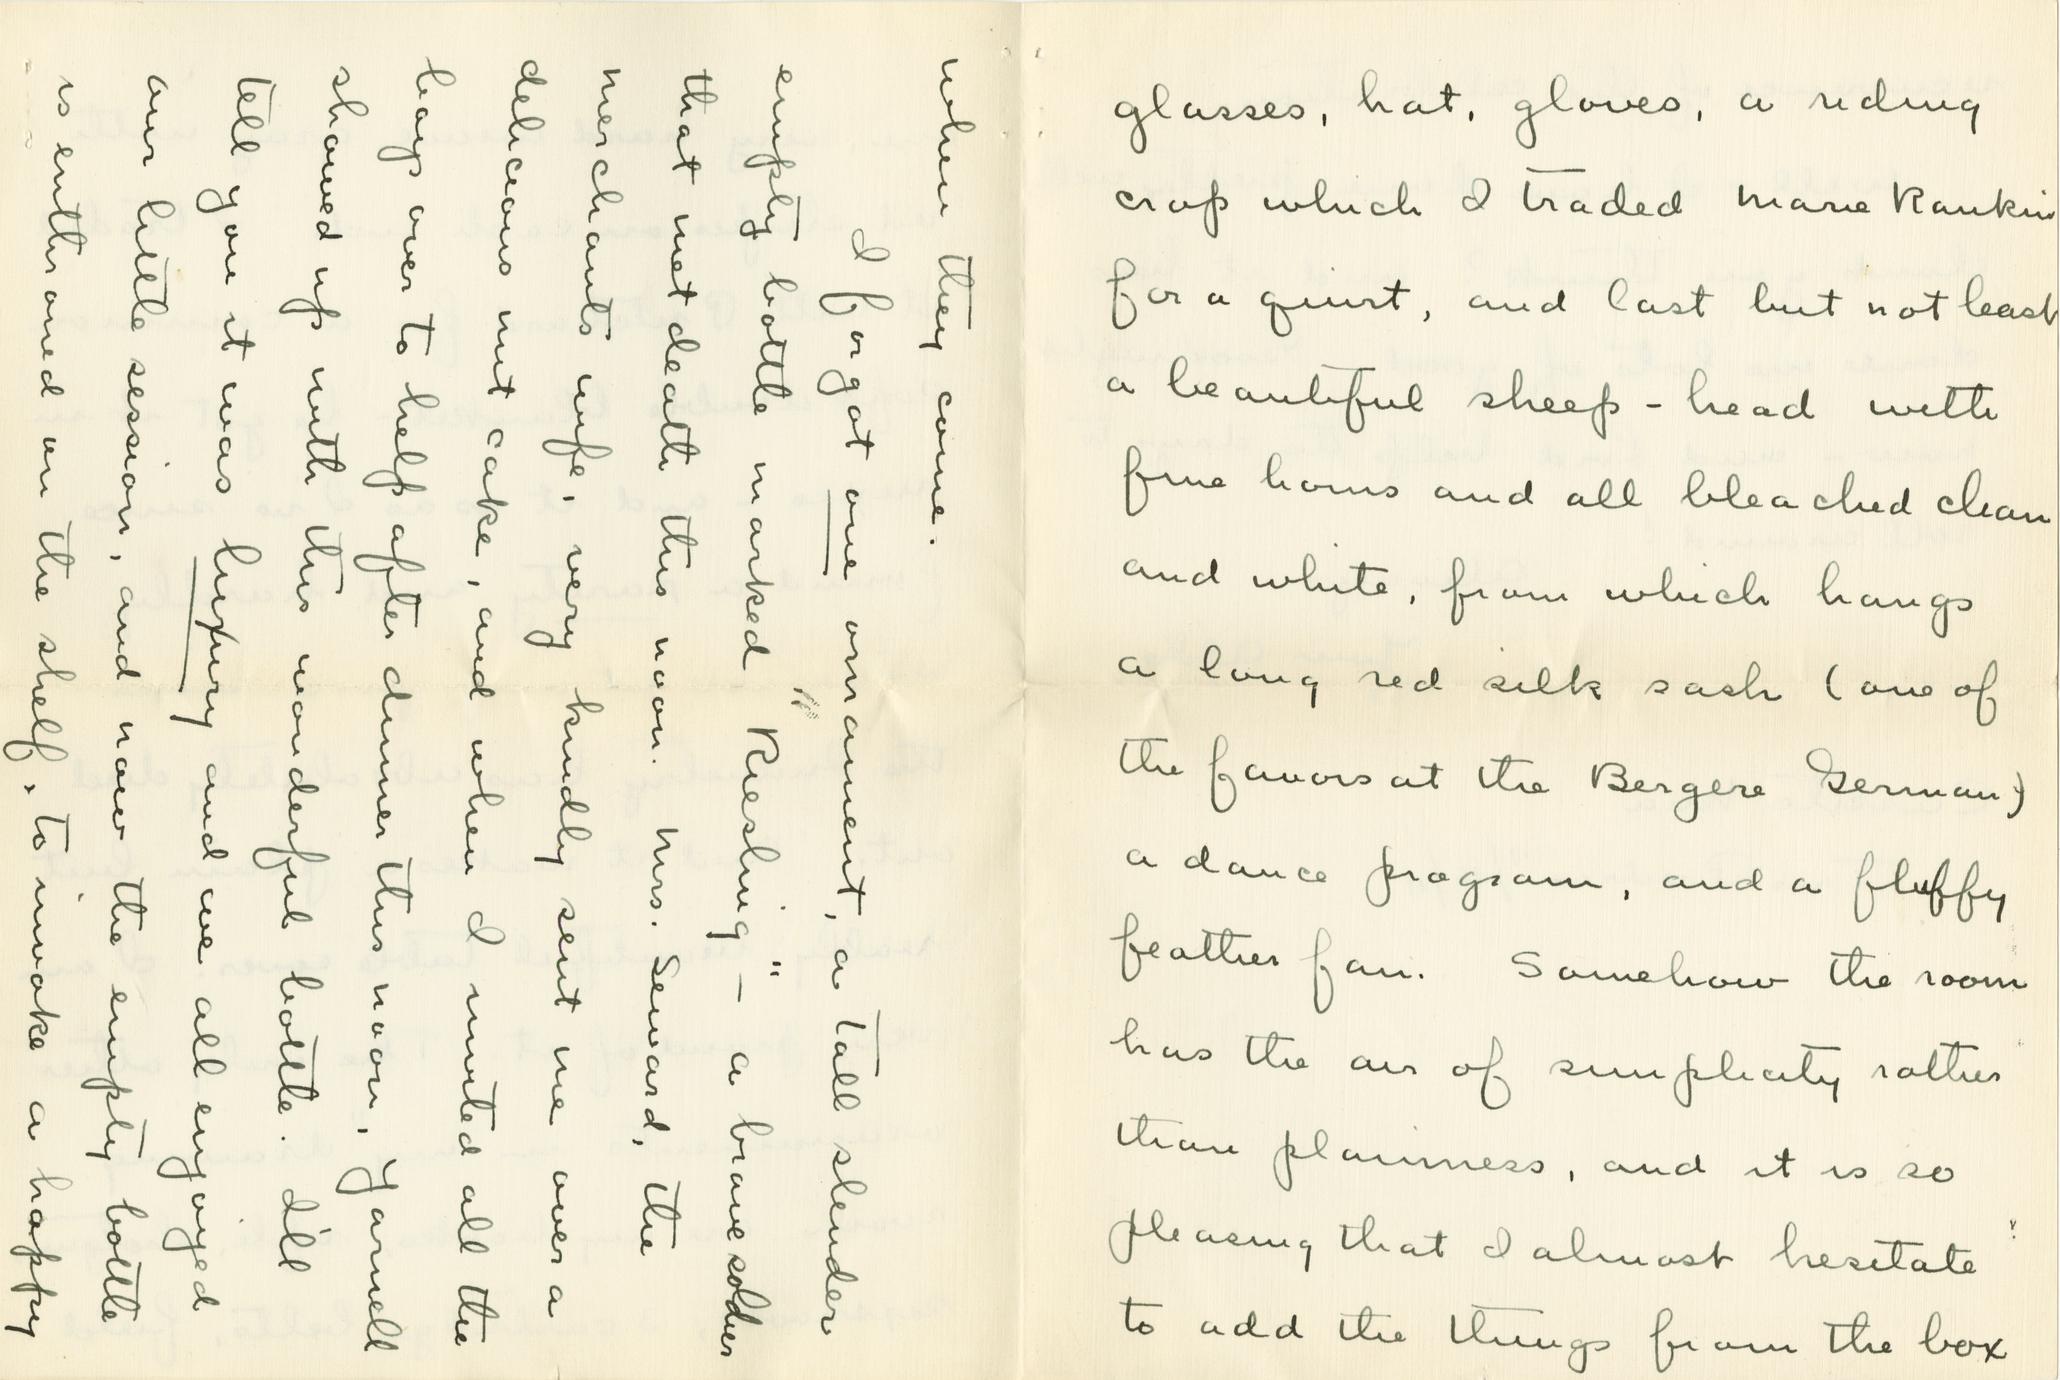 glasses, hat, gloves, a riding
crop which I traded Marie Rankin
for a quirt, and last but not least
a beautiful sheep-head with
fine horns and all bleached clean
and white, from which hangs
a long red silk sash (one of
the favors at the Bergere German)
a dance program, and a fluffy
feather fan. Somehow the room
has the air of simplicity rather
than plainness, and it is so
pleasing that I almost hesitate
to add the things from the box
when they come.
I forgot one ornament, a tall slender
empty bottle marked "Riesling" – a brave soldier
that met death this noon. Mrs. Seward, the
merchants wife, very kindly sent me over a
delicious nut cake, and when I invited all the
boys over to help after dinner this noon, Yarnell
showed up with this wonderful bottle. I'll
tell you it was luxury and we all enjoyed
our little session, and now the empty bottle
is enthroned on the shelf, to invoke a happy